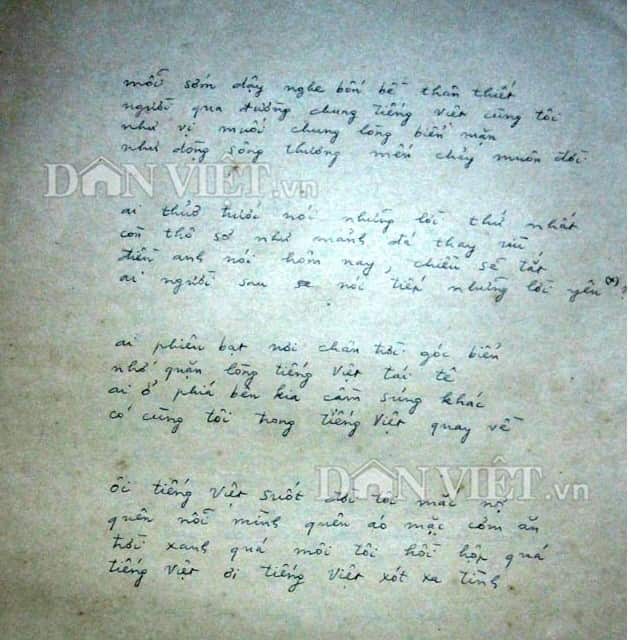 mỗi sớm dậy nghe bốn bề thân thiết
người qua đường chung tiếng Việt cùng tôi
như vị muối chung lòng biển mặn
như dòng sông thương mến chảy muôn đời
DÂN VIỆT.vn
ai thuở trước nói những lời thứ nhất
còn thô sơ như mảnh đá thay rìu
điều anh nói hôm nay, chiều sẽ tắt
ai người sau nói tiếp những lời yêu (*)?
ai phiêu bạt nơi chân trời góc biển
nhớ quặn lòng tiếng Việt tái tê
ai ở phía bên kia cầm súng khác
có cùng tôi trong tiếng Việt quay về
DÂN VIỆT.vn
ôi tiếng Việt suốt đời tôi mắc nợ
quên nỗi mình quên áo mặc cơm ăn
trời xanh quá môi tôi hồi hộp quá
tiếng Việt ơi tiếng Việt xót xa tình